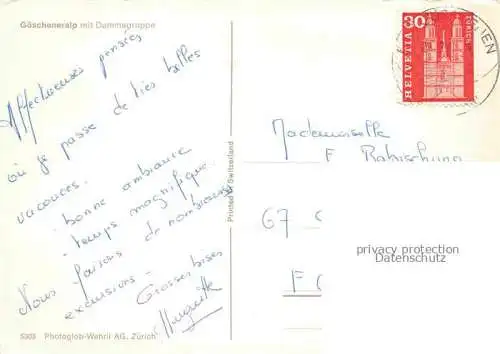 Göscheneralp mit Dammagruppe
Affectueuses pensées
où je passe de très belles
vacances.
bonne ambiance
temps magnifique.
Nous faisons de nombreuses
excursions. Grosses bises
Huguette
5303 Photoglob-Wehrli AG, Zürich
Printed in Switzerland
30
HELVETIA
ZÜRICH
Mademoiselle
F Rabischung
67 C
F C
privacy protection
Datenschutz